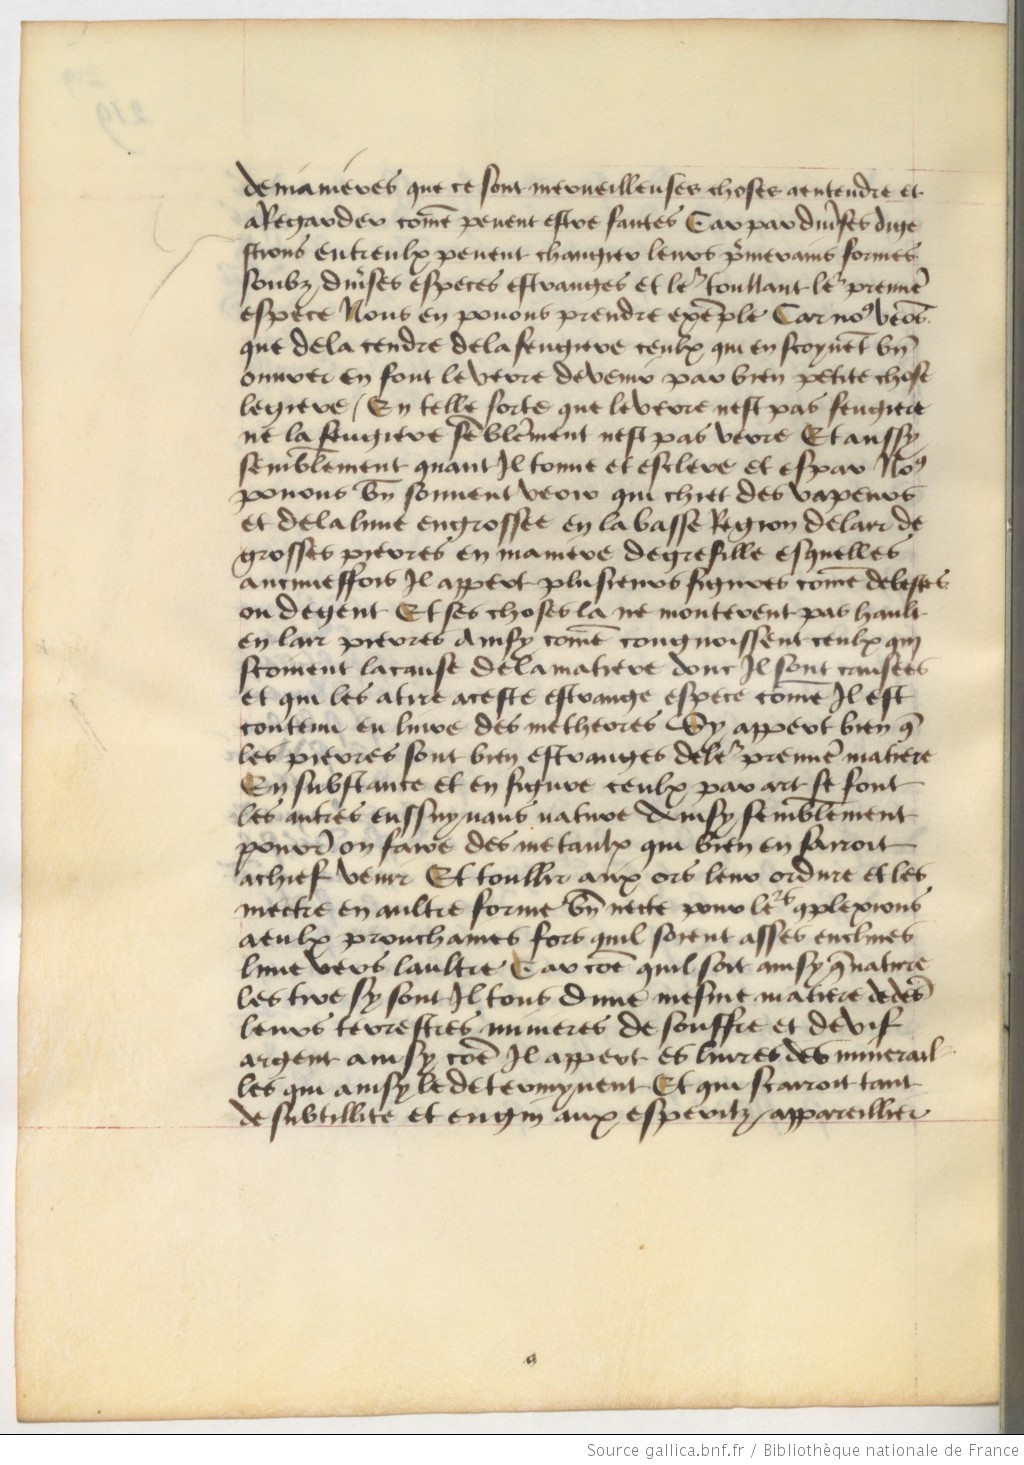 de manieres que ce sont merveilleuses choses a entendre et
a Regarder com̄e peuent estre faites Car par diũses dige
stions entreulx peuent changier leurs p̃merains formes
soubz diũses especes estranges et le᷒ toullant le᷒ premie᷒
espece Nous en pouons prendre exẽple Car noꝰ veõs
que de la cendre de la feugiere ceulx qui en scoyuẽt vñ
ouurer en font le verre devenir par bien petite chose
legiere / En telle sorte que le verre nest pas feugiere
ne la feugiere sẽblẽment nest pas verre Et aussy
semblẽment quant Il tonne et escleve et espar Noꝰ
pouons bñ souuent veoir qui chiet des vapeurs
et de la lune engrossee en la basse Region de lair de
grosses pierres en maniere de gresille esquelles
aucuneffois Il appert plusieurs figures com̄e de bestes
ou de gent Et ses choses la ne monterent pas hault
en lair pierres Ainsy com̄e congnoissent ceulx qui
scoiuent la cause de la matiere donc Il sont causees
et qui les atire a ceste estrange espece com̄e Il est
contenu eu livre des metheores Sy appert bien q̃
les pierres sont bien estranges de le᷒ premie᷒ matiere
En substance et en figure ceulx par art se font
les autres ensuyvans nature Ainsy semblẽment
pourr̃ on faire des metaulx qui bien en sarroit
a chief venir Et toullir aux ors leur ordure et les
mectre en aultre forme bñ necte pour le᷒s ꝯplexions
a eulx prouchaines fors quil soient asses enclines
lune vers laultre Car cõe quil soit ainsy q̃ nature
les tire sy sont Il tous dune mesme matiere de de᷒s
leurs terrestres minieres de souffre et de vif
argent ainsy cõe Il appert es livres des minerail
les qui ainsy le determynent Et qui scarroit tant
de subtillite et engin aux esperitz appareillier
Source gallica.bnf.fr / Bibliothèque nationale de France